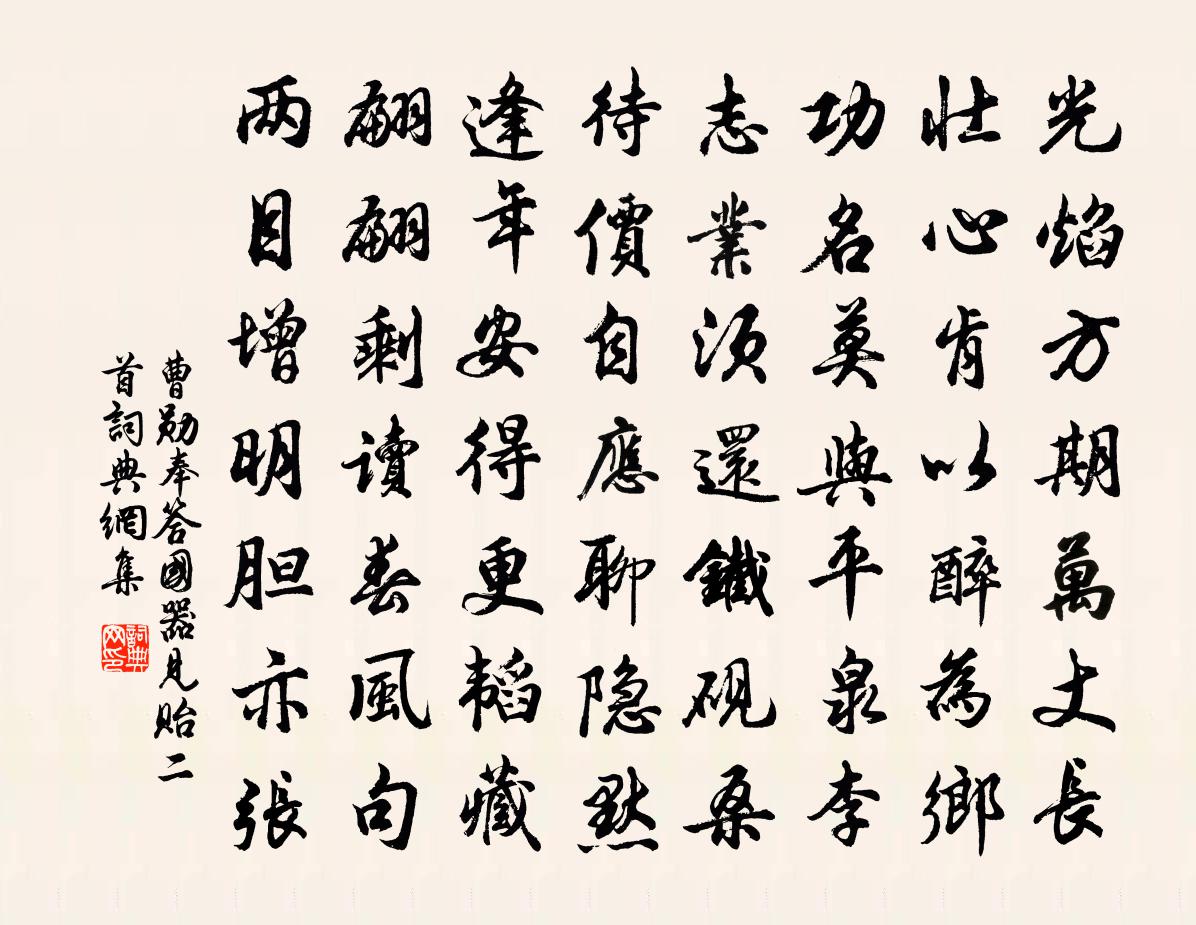 光焰方期萬丈長
壯心肯以醉為鄉
功名莫與平泉李
志業須還鐵硯桑
待價自應聊隐默
逢年安得更韜藏
翩翩剩讀春風句
两目增明胆亦張
曹勛奉答國器見貽二
首詞典網集
詞典
网印